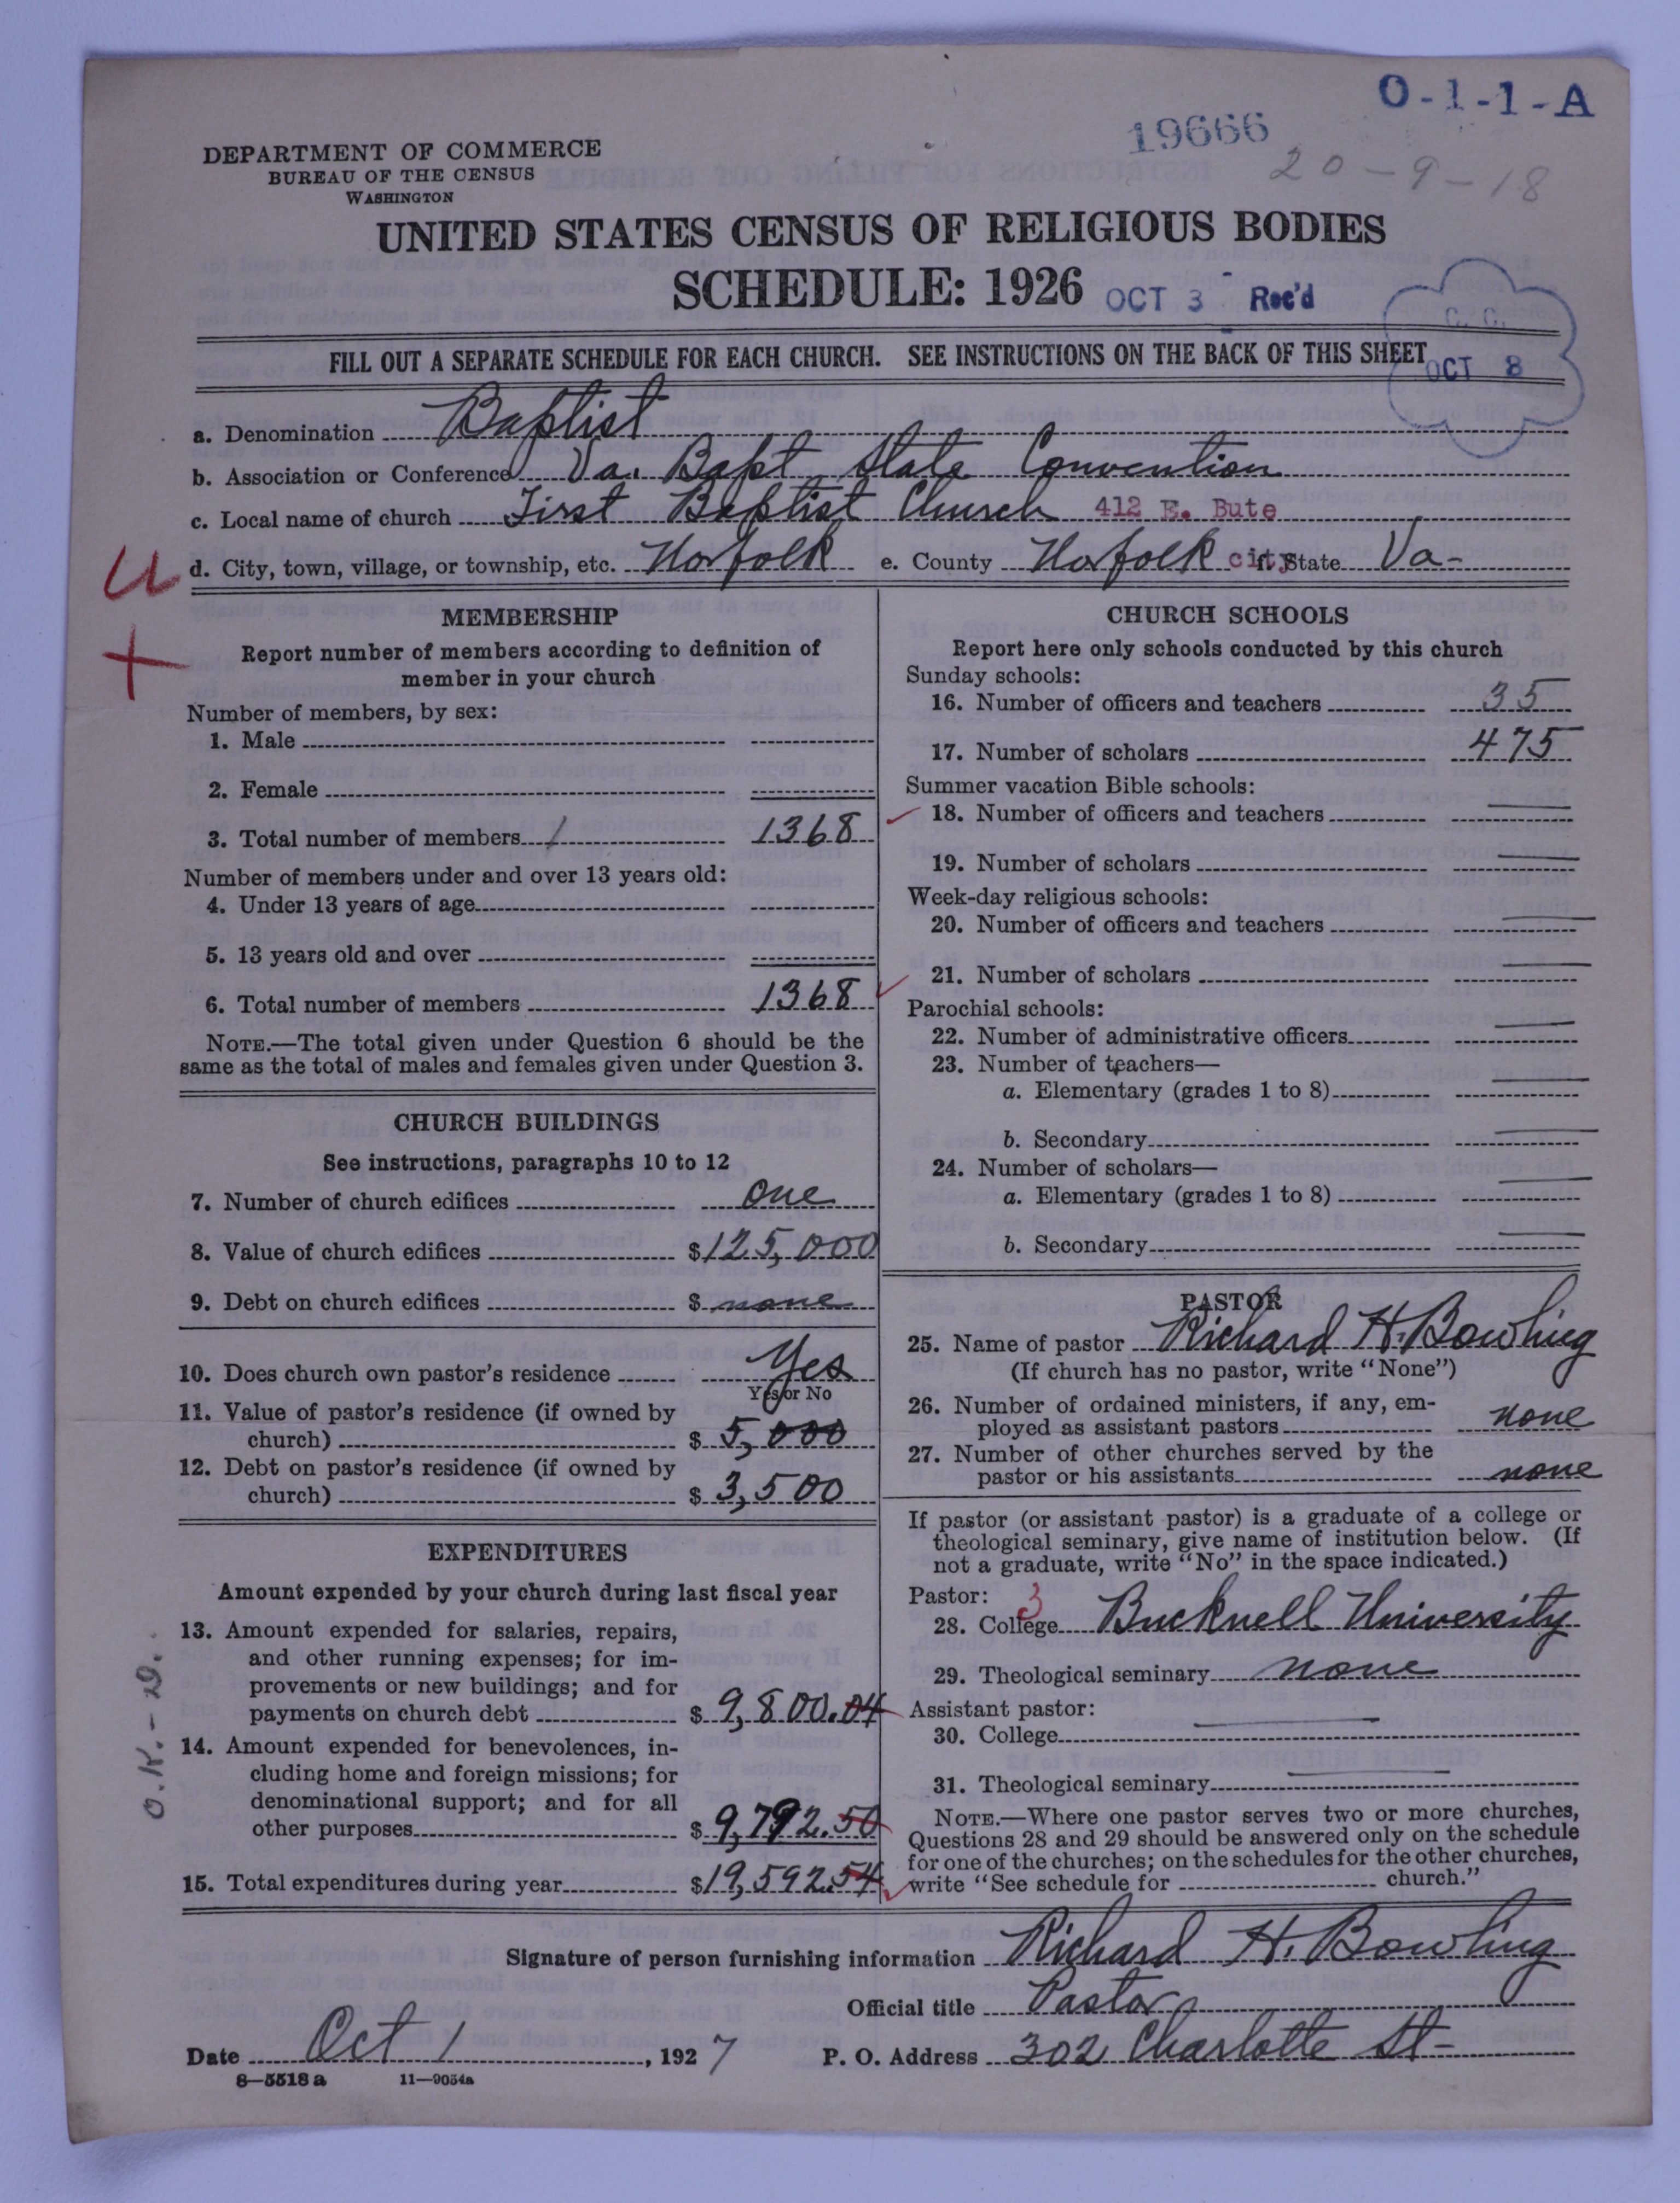 O-1-1-A
19666
20-9-18
DEPARTMENT OF COMMERCE
BUREAU OF THE CENSUS
WASHINGTON
UNITED STATES CENSUS OF RELIGIOUS BODIES
SCHEDULE: 1926 OCT 3 Rec'd
C. C.
OCT 8
FILL OUT A SEPARATE SCHEDULE FOR EACH CHURCH. SEE INSTRUCTIONS ON THE BACK OF THIS SHEET
a. Denomination Baptist
b. Association or Conference Va. Bapt State Convention
c. Local name of church First Baptist Church 412 E. Bute
d. City, town, village, or township, etc. Norfolk e. County Norfolk city f. State Va-
U
+
MEMBERSHIP
Report number of members according to definition of
member in your church
Number of members, by sex:
1. Male
2. Female
3. Total number of members / 1368
Number of members under and over 13 years old:
4. Under 13 years of age
5. 13 years old and over
6. Total number of members 1368
NOTE.—The total given under Question 6 should be the
same as the total of males and females given under Question 3.
CHURCH BUILDINGS
See instructions, paragraphs 10 to 12
7. Number of church edifices one
8. Value of church edifices $125,000
9. Debt on church edifices $ none
10. Does church own pastor's residence Yes
Yes or No
11. Value of pastor's residence (if owned by
church) $ 5,000
12. Debt on pastor's residence (if owned by
church) $ 3,500
EXPENDITURES
Amount expended by your church during last fiscal year
13. Amount expended for salaries, repairs,
and other running expenses; for im-
provements or new buildings; and for
payments on church debt $ 9,800.04
14. Amount expended for benevolences, in-
cluding home and foreign missions; for
denominational support; and for all
other purposes $ 9,792.50
15. Total expenditures during year $19,592.54
O.K.-D.
CHURCH SCHOOLS
Report here only schools conducted by this church
Sunday schools:
16. Number of officers and teachers 35
17. Number of scholars 475
Summer vacation Bible schools:
18. Number of officers and teachers
19. Number of scholars
Week-day religious schools:
20. Number of officers and teachers
21. Number of scholars
Parochial schools:
22. Number of administrative officers
23. Number of teachers—
a. Elementary (grades 1 to 8)
b. Secondary
24. Number of scholars—
a. Elementary (grades 1 to 8)
b. Secondary
PASTOR
25. Name of pastor Richard H. Bowling
(If church has no pastor, write "None")
26. Number of ordained ministers, if any, em-
ployed as assistant pastors none
27. Number of other churches served by the
pastor or his assistants none
If pastor (or assistant pastor) is a graduate of a college or
theological seminary, give name of institution below. (If
not a graduate, write "No" in the space indicated.)
Pastor: 3
28. College Bucknell University
29. Theological seminary none
Assistant pastor:
30. College
31. Theological seminary
NOTE.—Where one pastor serves two or more churches,
Questions 28 and 29 should be answered only on the schedule
for one of the churches; on the schedules for the other churches,
write "See schedule for church."
Signature of person furnishing information Richard H. Bowling
Official title Pastor
Date Oct 1, 1927 P. O. Address 302 Charlotte St-
8—5518 a 11—9054a